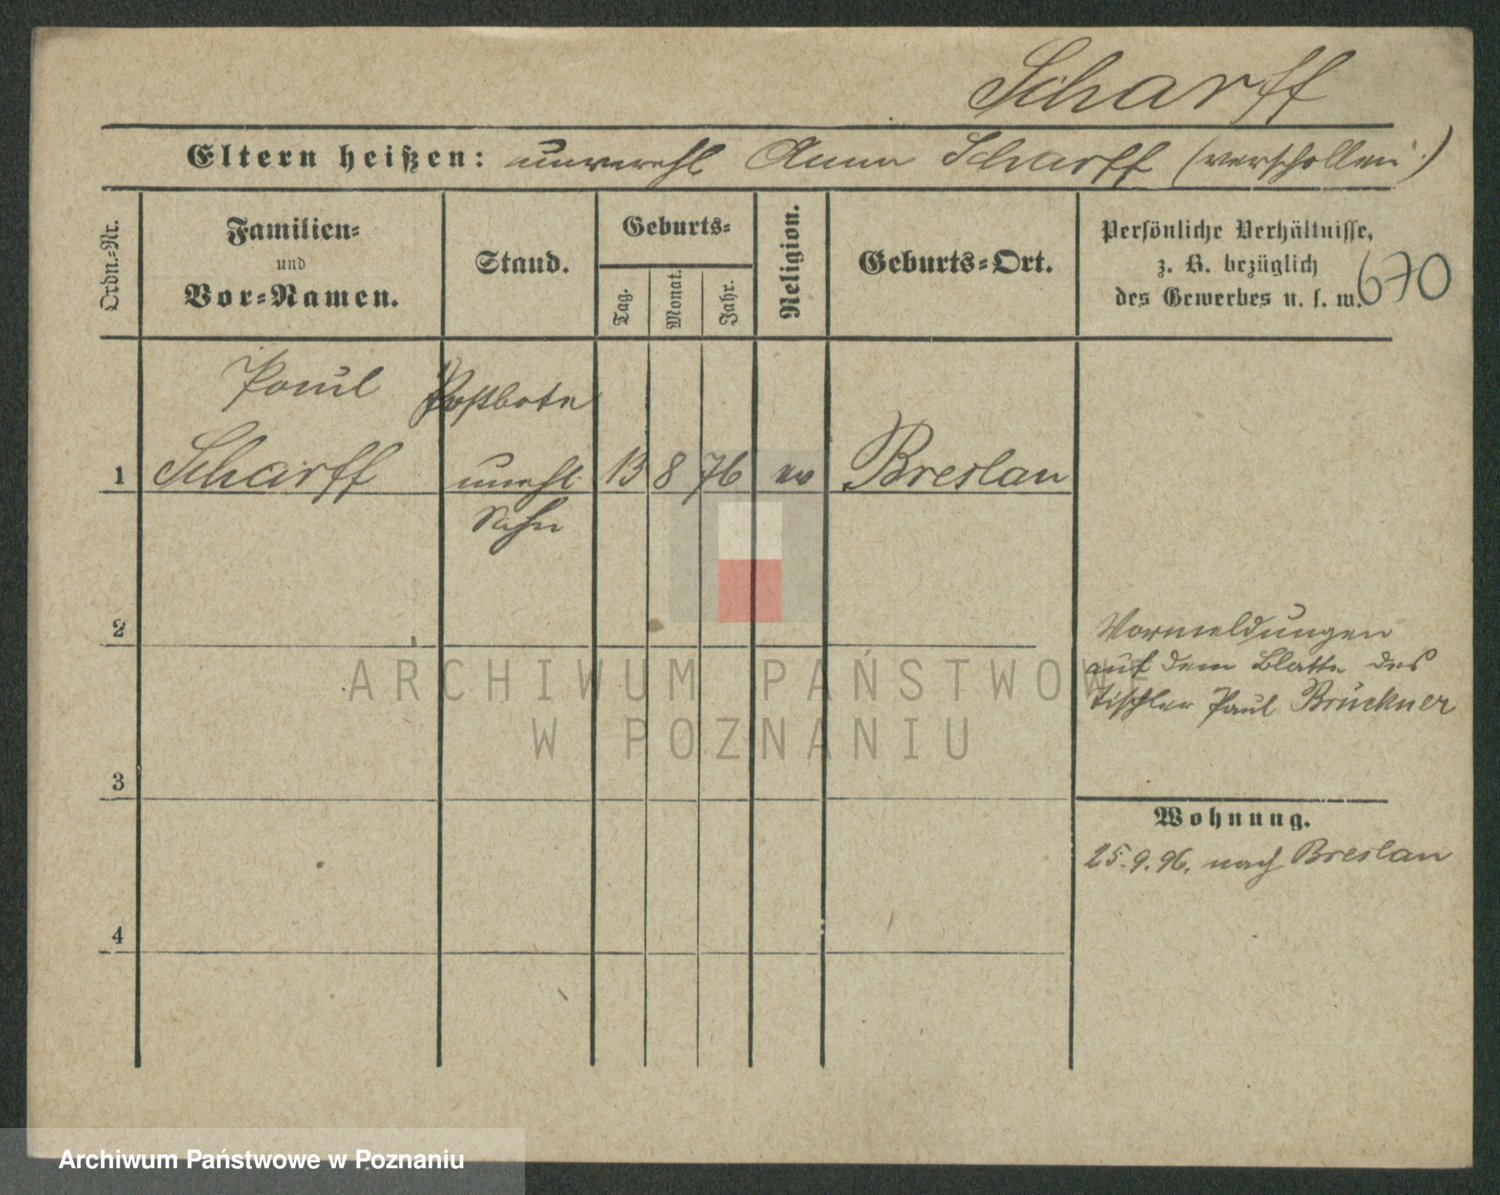 Scharff
Eltern heißen: unverehl Anna Scharff (verschollen.)
Ordn.-Nr.
Familien-
und
Vor-Namen.
Stand.
Geburts-
Tag.
Monat.
Jahr.
Religion.
Geburts-Ort.
Persönliche Verhältnisse,
z. B. bezüglich
des Gewerbes u. s. w.
670
Paul Postbote
1 Scharff unehl 13 8 76 ev Breslau
Sohn
2
Vormeldungen
auf dem Blatte des
Tischler Paul Brückner
3
Wohnung.
25.9.96. nach Breslau
4
ARCHIWUM PAŃSTWOWE
W POZNANIU
Archiwum Państwowe w Poznaniu